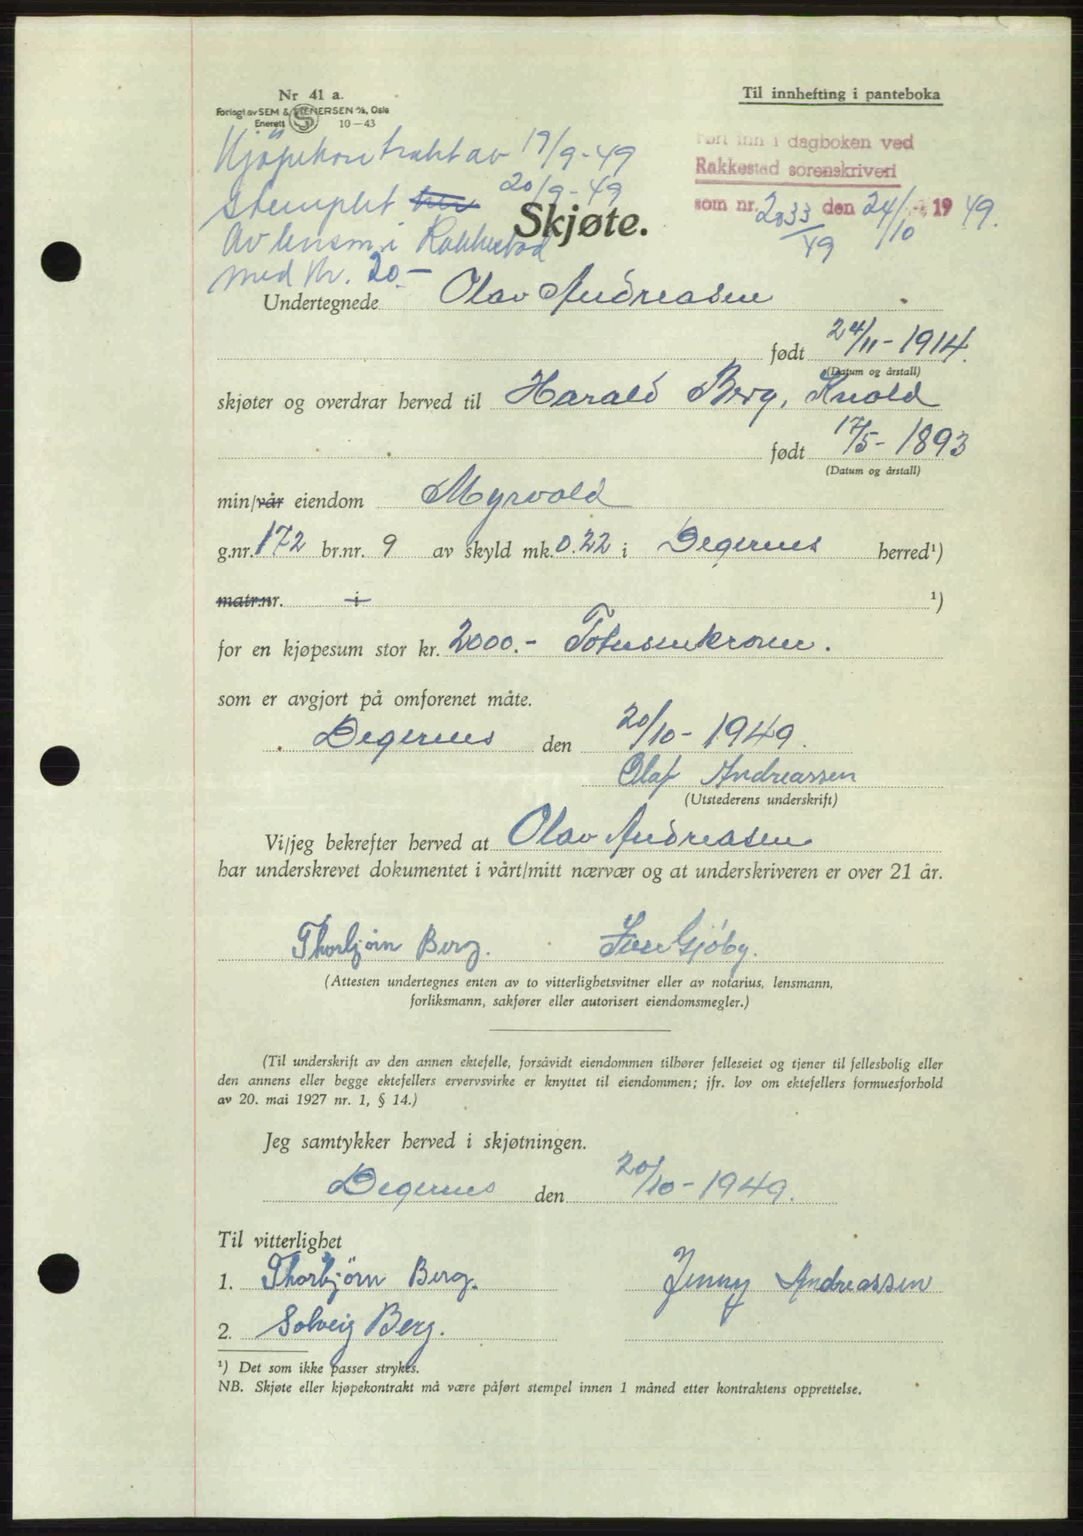 Nr 41 a.
Forlagt av SEM & STENERSEN A/S, Oslo
Enerett 10-43
Til innhefting i panteboka
Kjøpekontrakt av 19/9-49
stemplet her 20/9-49
av lensm. i Rakkestad
med kr. 20.-
ført inn i dagboken ved
Rakkestad sorenskriveri
som nr. 2033/49 den 24/10 1949.
Skjøte.
Undertegnede Olav Andreasen
født 24/11-1914.
(Datum og årstall)
skjøter og overdrar herved til Harald Berg, Knold
født 17/5-1893
(Datum og årstall)
min/vår eiendom Myrvold
g.nr. 172 br.nr. 9 av skyld mk. 0.22 i Degernes herred¹)
matr.nr. i ¹)
for en kjøpesum stor kr. 2000.- Totusenkroner.
som er avgjort på omforenet måte.
Degernes den 20/10-1949.
Olaf Andreassen
(Utstederens underskrift)
Vi/jeg bekrefter herved at Olav Andreasen
har underskrevet dokumentet i vårt/mitt nærvær og at underskriveren er over 21 år.
Thorbjørn Berg. Gjøby.
(Attesten undertegnes enten av to vitterlighetsvitner eller av notarius, lensmann,
forliksmann, sakfører eller autorisert eiendomsmegler.)
(Til underskrift av den annen ektefelle, forsåvidt eiendommen tilhører felleseiet og tjener til fellesbolig eller
den annens eller begge ektefellers ervervsvirke er knyttet til eiendommen; jfr. lov om ektefellers formuesforhold
av 20. mai 1927 nr. 1, § 14.)
Jeg samtykker herved i skjøtningen.
Degernes den 20/10-1949.
Til vitterlighet
1. Thorbjørn Berg. Jenny Andreassen
2. Solveig Berg.
¹) Det som ikke passer strykes.
NB. Skjøte eller kjøpekontrakt må være påført stempel innen 1 måned etter kontraktens opprettelse.